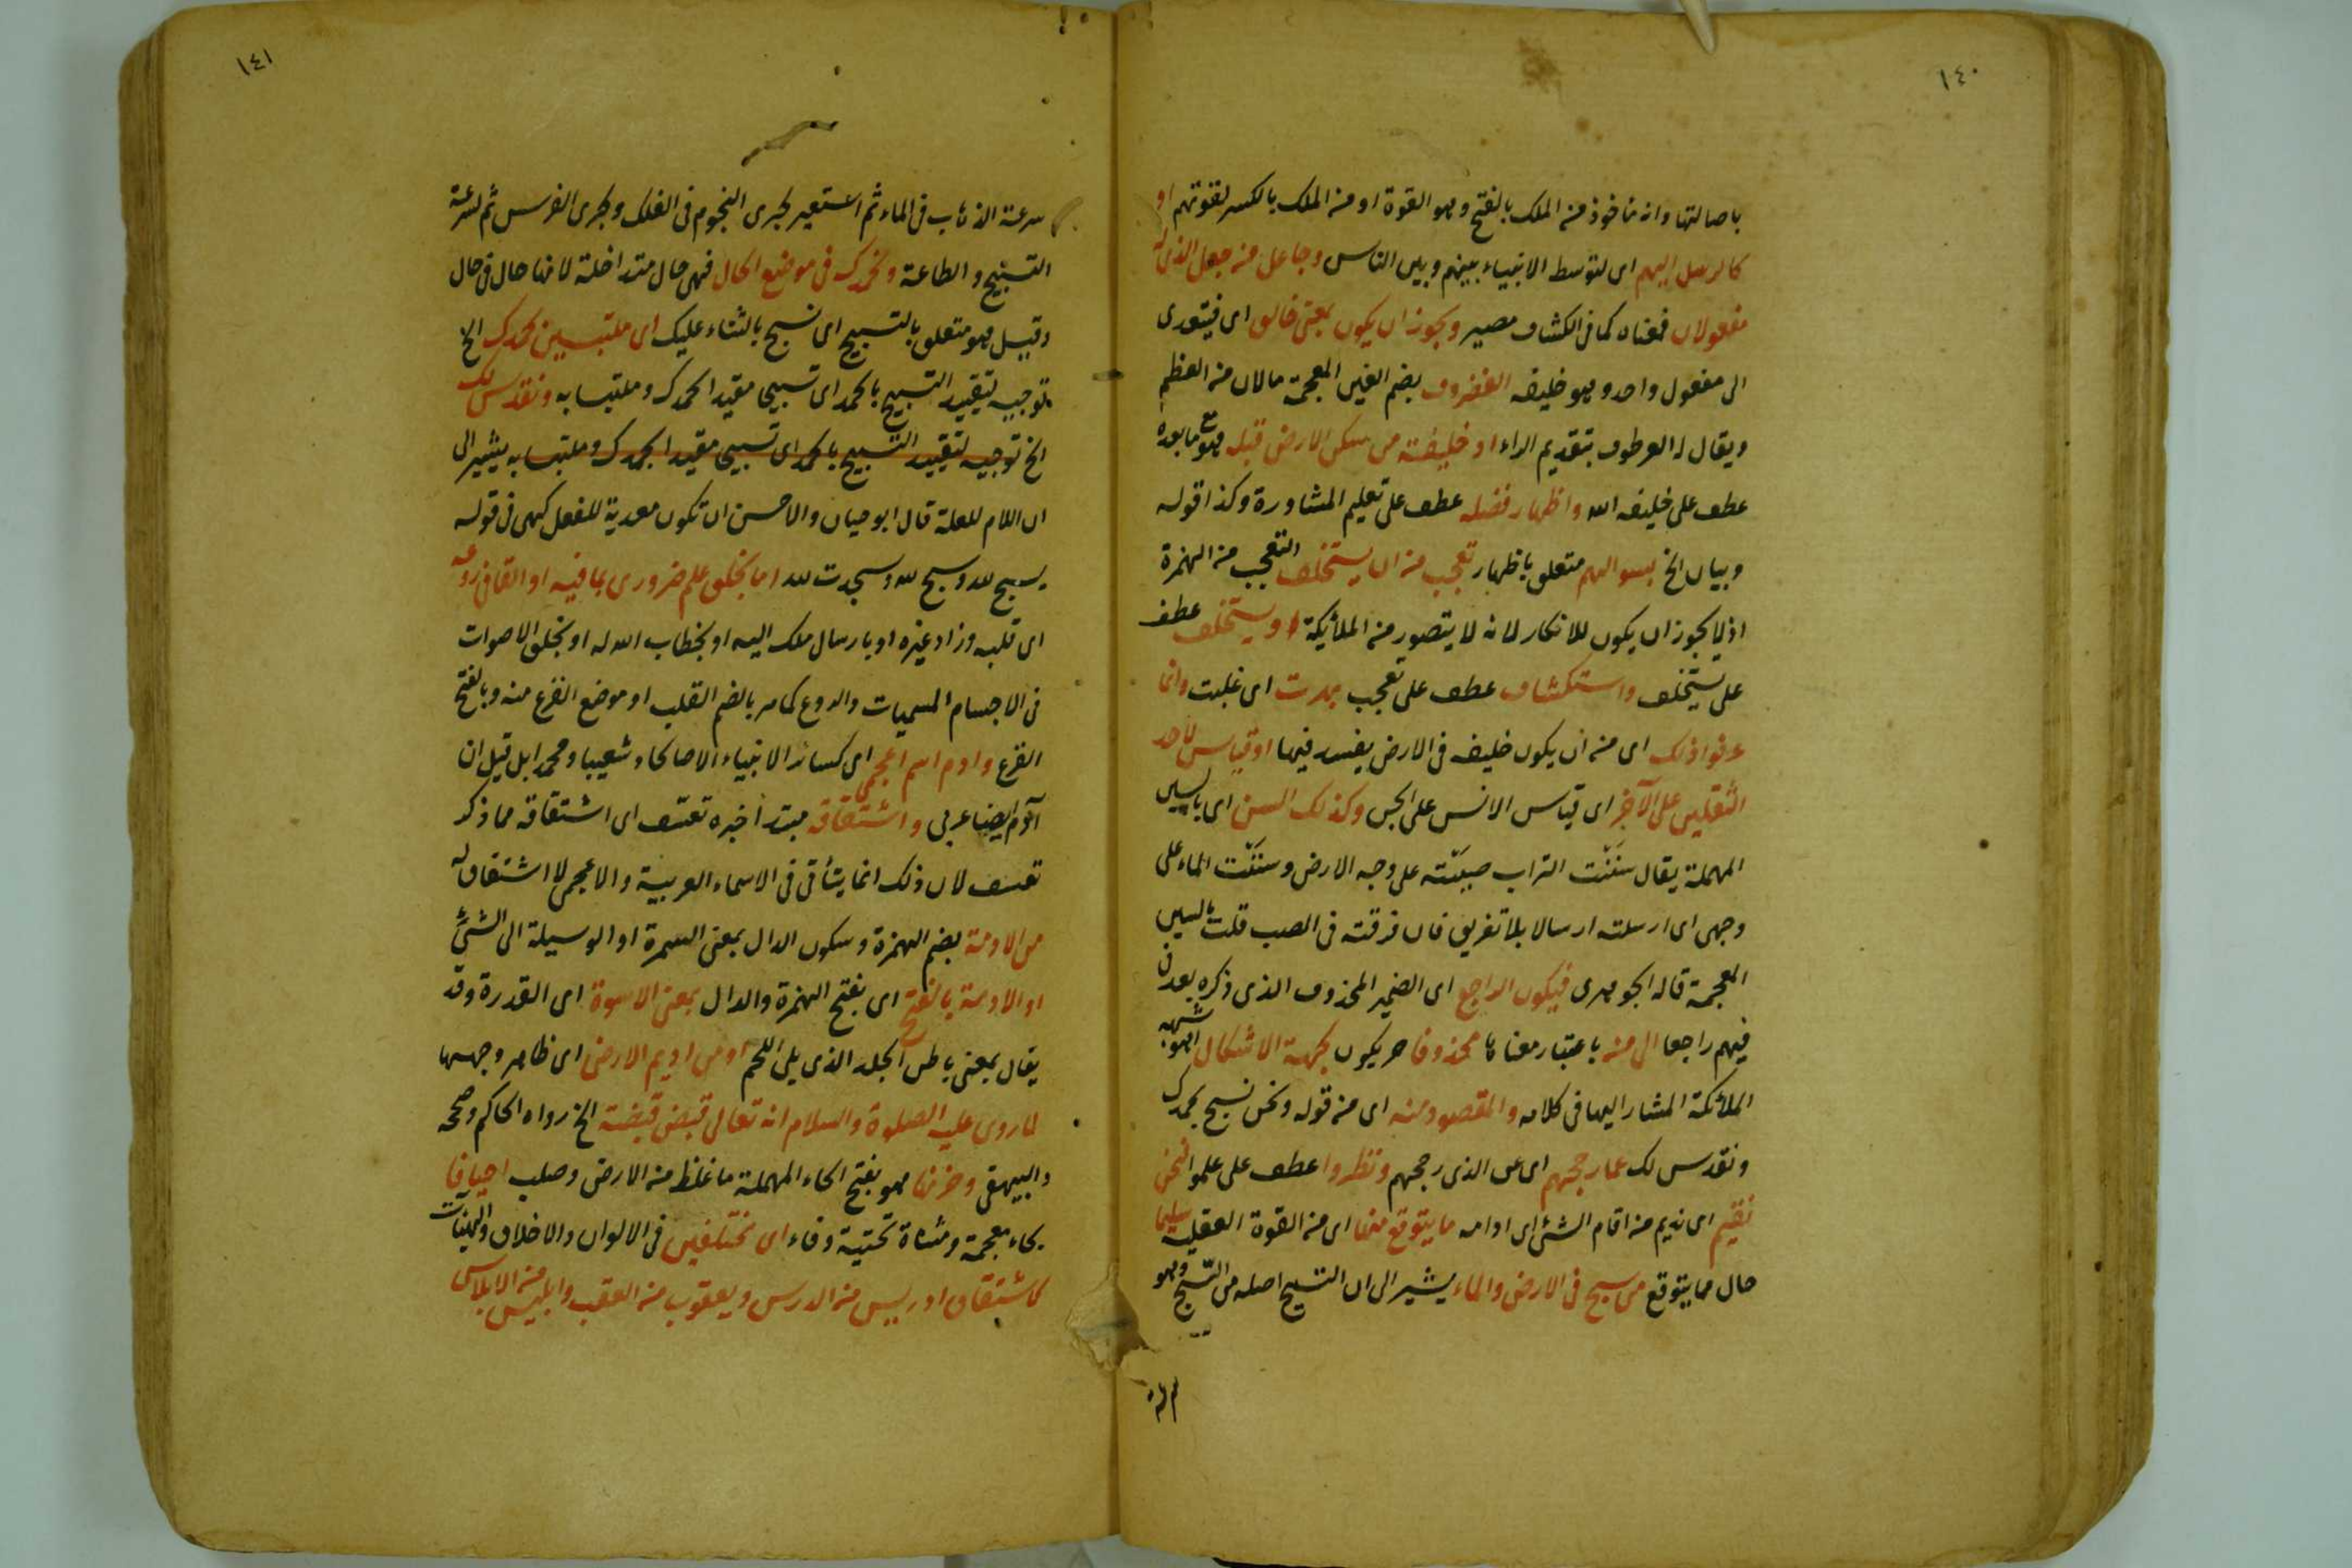 ١٤٠
باصالتها وانه مأخوذ من الملك بالفتح وهو القوة او من الملك بالكسر لقوتهم او
كالرسل اليهم اى لتوسط الانبياء بينهم وبين الناس وجاعل من جعل الذى له
مفعولان فمعناه كما فى الكشاف مصير ويجوز ان يكون بمعنى خالق اى فيتعدى
الى مفعول واحد وهو خليفه الغضروف بضم الغين المعجمة مالان من العظم
ويقال له العرطوف بتقديم الراء او خليفة من سكن الارض قبله فهو مع ما بعده
عطف على خليفه الله واظهار فضله عطف على تعليم المشاورة وكذا قوله
وبيان الخ بسوالهم متعلق باظهار تعجب من ان يستخلف التعجب من الهمزة
اذ لا يجوز ان يكون للانكار لانه لا يتصور من الملائكة او يستخلف عطف
على يستخلف واستكشاف عطف على تعجب بهرت اى غلبت وانما
عرفوا ذلك اى من ان يكون خليفه فى الارض يفسد فيها او قياس لاحد
الثقلين على الآخر اى قياس الانس على الجن وكذلك السن اى بالسين
المهملة يقال سننت التراب صببته على وجه الارض وسننت الماء على
وجهى اى ارسلته ارسالا بلا تفريق فان فرقته فى الصب قلت بالسين
المعجمة قاله الجوهرى فيكون الراجع اى الضمير المحذوف الذى ذكره بعد ن
فيهم راجعا الى من باعتبار معناها محذوفا ح يكون بجهة الاشكال شبهه
الملائكة المشار اليها فى كلامه والمقصود منه اى من قوله ونحن نسبح بحمدك
ونقدس لك عما رجحهم اى عن الذى رجحهم ونظروا عطف على علموا نحن
نقيم اى نديم من اقام الشئ اى ادامه ما يتوقع منها اى من القوة العقليه سليما
حال مما يتوقع من سبح فى الارض والماء يشير الى ان التسبيح اصله من السبح وهو
١٤١
سرعة الذهاب فى الماء ثم استعير لجرى النجوم فى الفلك ولجرى الفرس ثم لسرعة
التسبيح والطاعة وبحمدك فى موضع الحال فهى حال متداخلة لانها حال فى حال
وقيل هو متعلق بالتسبيح اى نسبح بالثناء عليك اى ملتبسين بحمدك الخ
توجيه لتقييد التسبيح بالحمد اى تسبيحى مقيد الحمدك وملتبسا به ونقدس لك
الخ توجيه لتقييد التسبيح بالحمد اى تسبيحى مقيدا بحمدك وملتبسا به يشير الى
ان اللام للعلة قال ابو حيان والاحسن ان تكون معدية للفعل كهى فى قوله
يسبح لله وسبح لله وسجدت لله اما بخلق علم ضرورى بها فيه او القا فى روعه
اى قلبه وزاد غيره او بارسال ملك اليه او بخطاب الله له او بخلق الاصوات
فى الاجسام المسميات والروع كما مر بالضم القلب او موضع الفزع منه وبالفتح
الفزع وادم اسم اعجمى اى كسائر الانبياء الا صالحا وشعيبا ومحمدا بل قيل ان
آدم ايضا عربى واشتقاقه مبتدأ خبره تعسف اى اشتقاقه مما ذكر
تعسف لان ذلك انما يتأتى فى الاسماء العربية والاعجمى لا اشتقاق له
من الادمة بضم الهمزة وسكون الدال بمعنى السمرة او الوسيلة الى الشئ
او الادمة بالفتح اى بفتح الهمزة والدال بمعنى الاسوة اى القدرة وقد
يقال بمعنى باطن الجلد الذى يلى اللحم او من اديم الارض اى ظاهر وجهها
لما روى عليه الصلوة والسلام انه تعالى قبض قبضة الخ رواه الحاكم وصححه
والبيهقى وحزنها هو بفتح الحاء المهملة ما غلظ من الارض وصلب اخيافا
بخاء معجمة ومثناة تحتية وفاء اى مختلفين فى الالوان والاخلاق والهيئات
كاشتقاق ادريس من الدرس ويعقوب من العقب وابليس من الابلاس